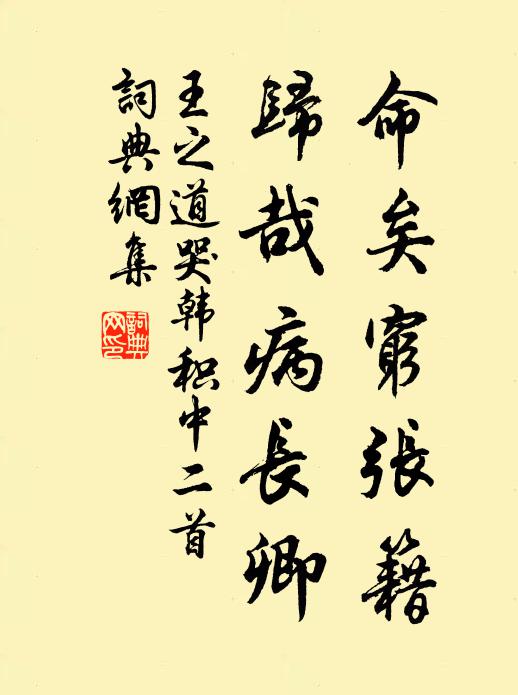 命矣窮張籍
歸哉病長卿
王之道哭韩积中二首
詞典網集
詞典網印